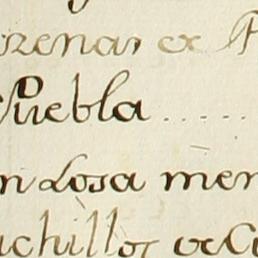 ozenas de P
Puebla .....
n Losa men
uchillos de Cu